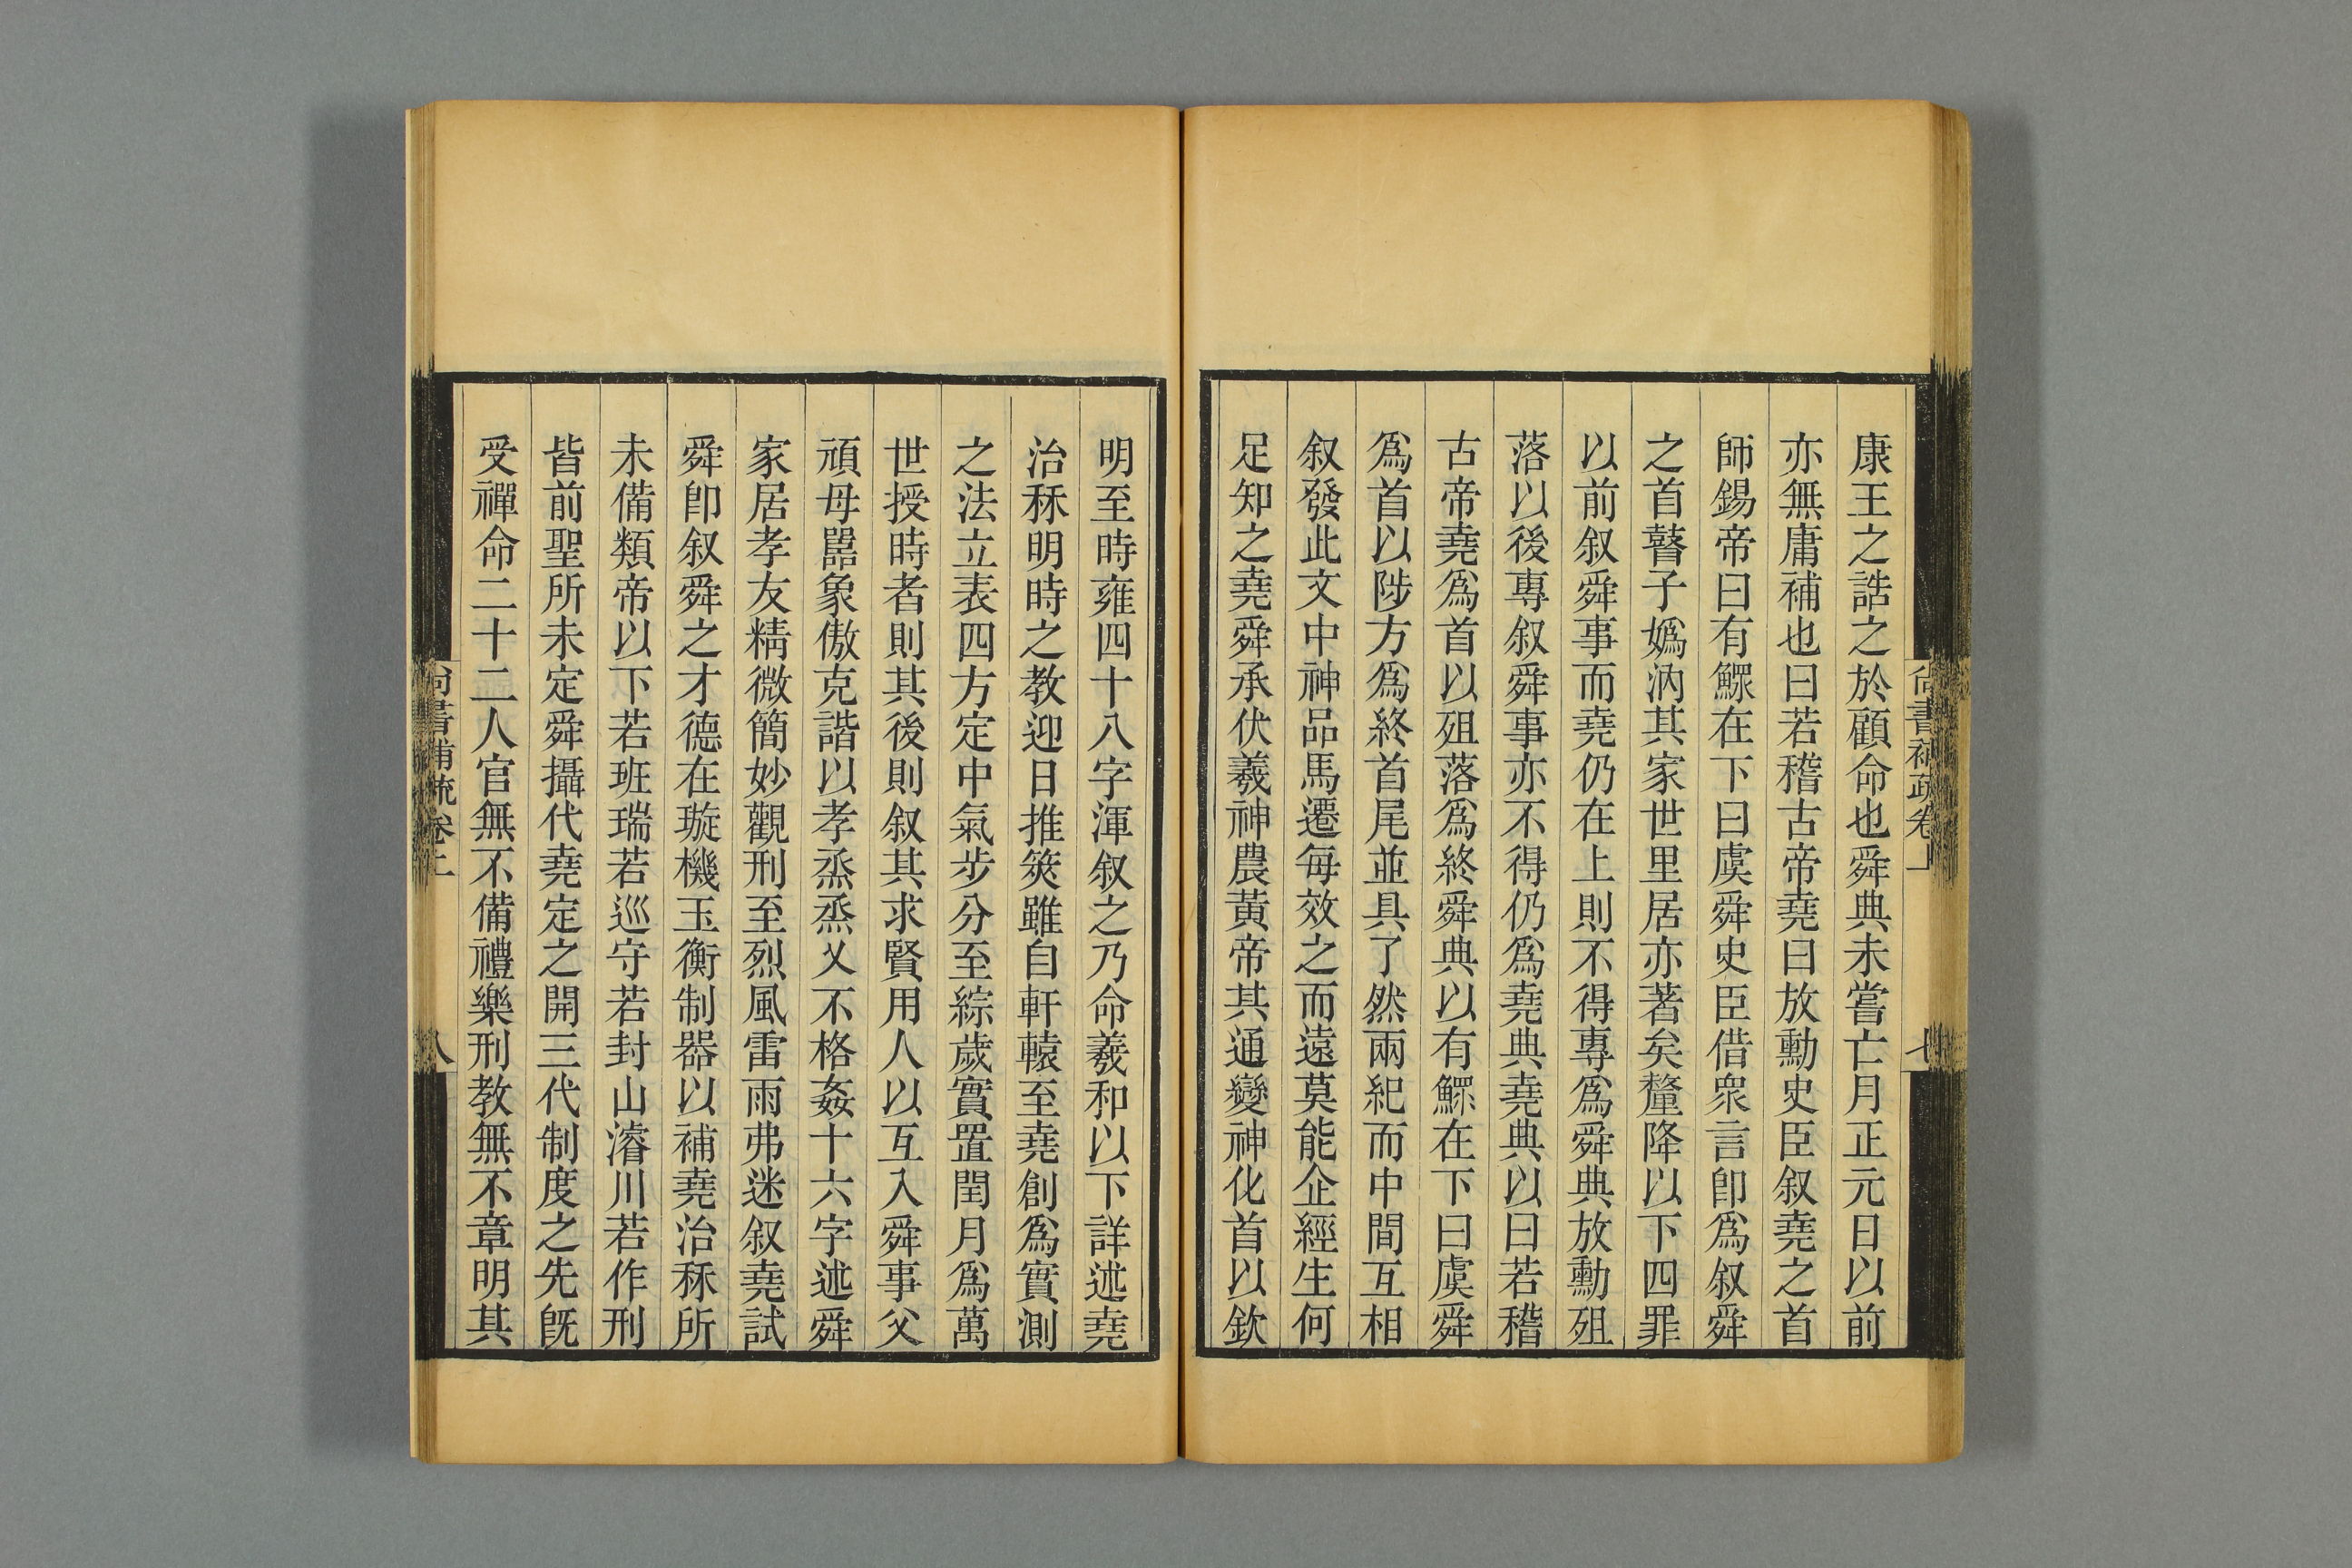 尚書補疏卷上
七
康王之誥之於顧命也舜典未嘗亡月正元日以前
亦無庸補也曰若稽古帝堯曰放勳史臣叙堯之首
師錫帝曰有鰥在下曰虞舜史臣借衆言卽爲叙舜
之首瞽子嬀汭其家世里居亦著矣釐降以下四罪
以前叙舜事而堯仍在上則不得專爲舜典放勳殂
落以後專叙舜事亦不得仍爲堯典堯典以曰若稽
古帝堯爲首以殂落爲終舜典以有鰥在下曰虞舜
爲首以陟方爲終首尾並具了然兩紀而中間互相
叙發此文中神品馬遷每效之而遠莫能企經生何
足知之堯舜承伏羲神農黃帝其通變神化首以欽
明至時雍四十八字渾叙之乃命羲和以下詳述堯
治秝明時之教迎日推筴雖自軒轅至堯創爲實測
之法立表四方定中氣步分至綜歲實置閏月爲萬
世授時者則其後則叙其求賢用人以互入舜事父
頑母嚚象傲克諧以孝烝烝乂不格姦十六字述舜
家居孝友精微簡妙觀刑至烈風雷雨弗迷叙堯試
舜卽叙舜之才德在璇機玉衡制器以補堯治秝所
未備類帝以下若班瑞若巡守若封山濬川若作刑
皆前聖所未定舜攝代堯定之開三代制度之先旣
受禪命二十二人官無不備禮樂刑教無不章明其
尚書補疏卷上
八